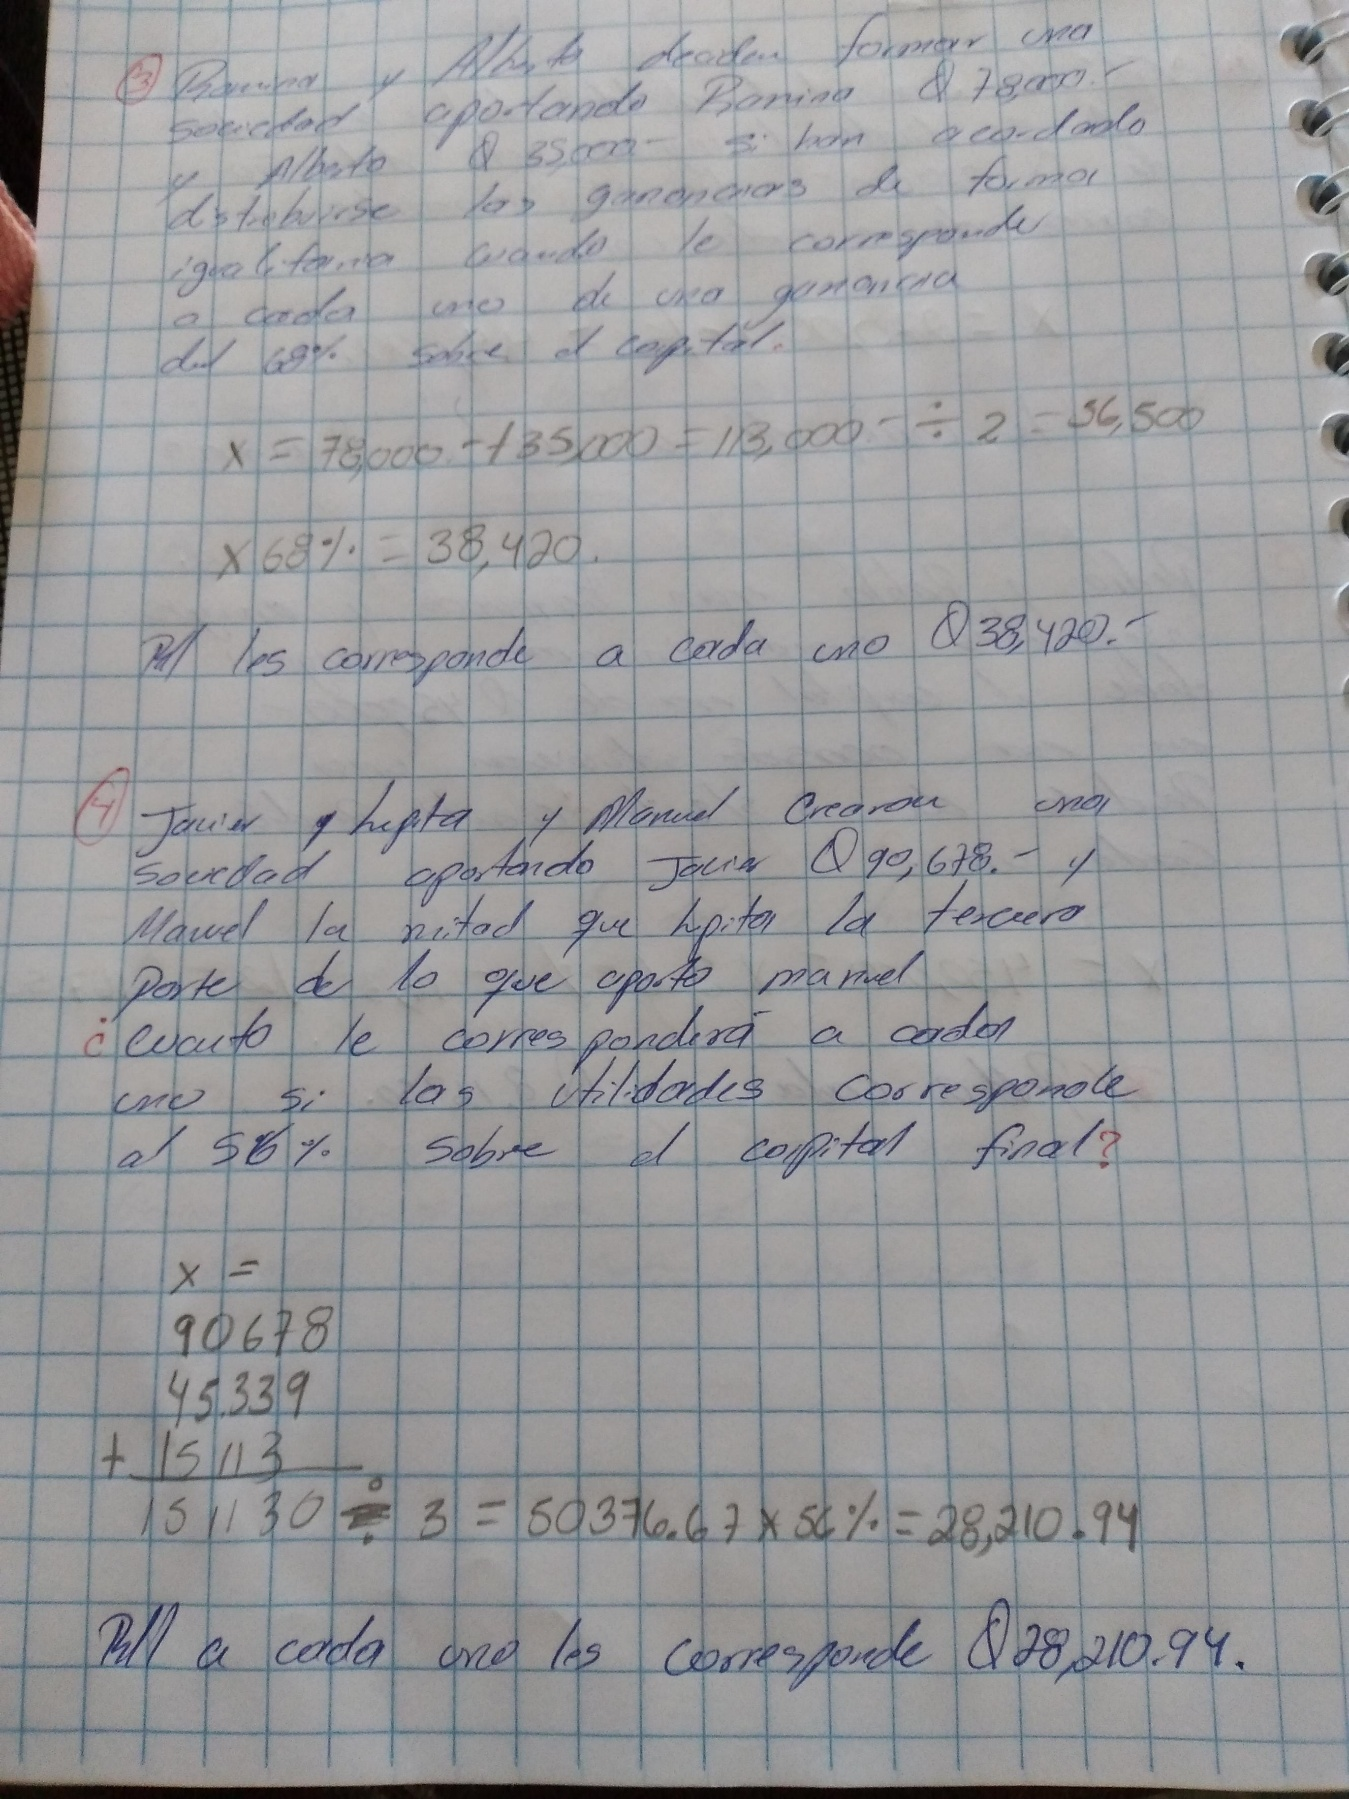 3 Romina y Alberto deciden formar una
sociedad aportando Romina Q 78,000.-
y Alberto Q 35,000- si han acordado
distribuirse las ganancias de forma
igualitaria cuando le corresponde
a cada uno de una ganancia
del 68% sobre el capital.
x = 78,000.- + 35,000 = 113,000 - ÷ 2 = 56,500
x 68% = 38,420.
R// les corresponde a cada uno Q 38,420.-
4 Javier y Lupita y Manuel Crearon una
sociedad aportando Javier Q 90,678.- y
Manuel la mitad que Lupita la tercera
parte de lo que aporto manuel
¿cuanto le corresponderá a cada
uno si las utilidades corresponde
al 56% sobre el capital final?
x =
90678
45.339
+ 15113
151130 ÷ 3 = 50376.67 x 56% = 28,210.94
R// a cada uno les corresponde Q 28,210.94.